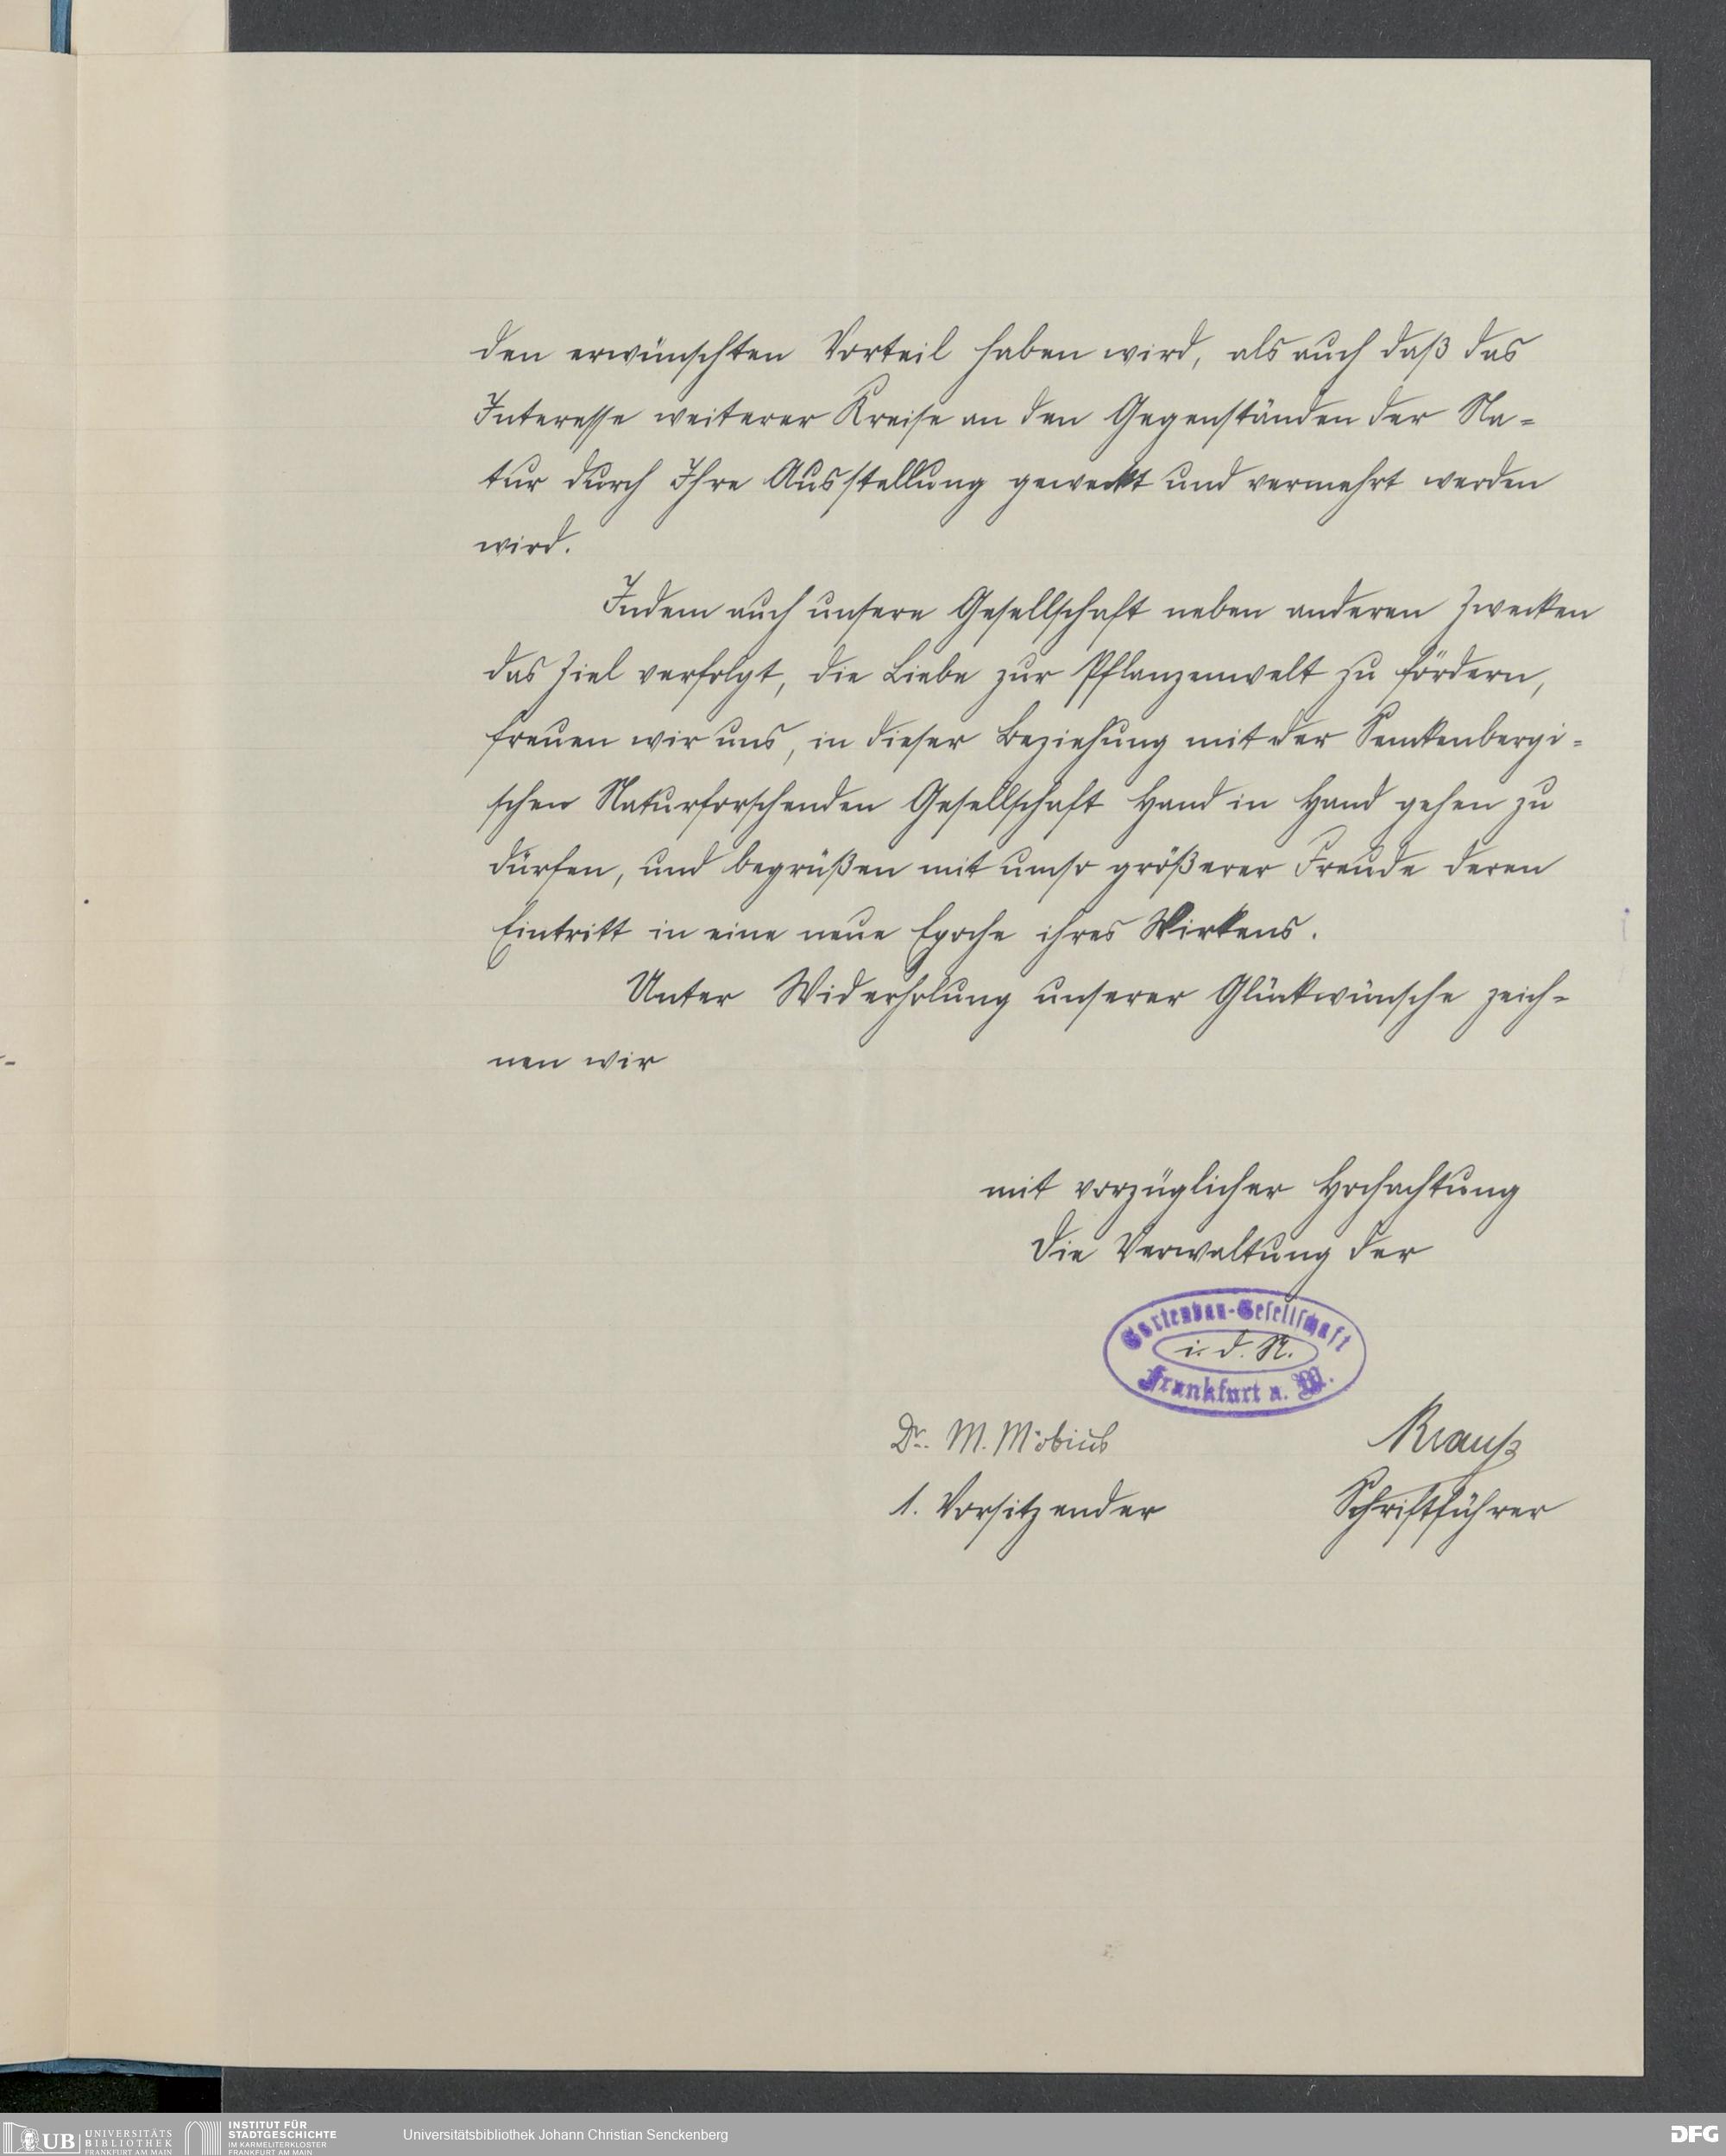 den erwünschten Vorteil haben wird, als auch daß das
Interesse weiterer Kreise an den Gegenständen der Na=
tur durch Ihre Ausstellung geweckt und vermehrt werden
wird.
Indem auch unsere Gesellschaft neben anderen Zwecken
das Ziel verfolgt, die Liebe zur Pflanzenwelt zu fördern,
freuen wir uns, in dieser Beziehung mit der Senckenbergi=
schen Naturforschenden Gesellschaft Hand in Hand gehen zu
dürfen, und begrüßen mit umso größerer Freude deren
Eintritt in eine neue Epoche ihres Wirkens.
Unter Widerholung unserer Glückwünsche zeich=
nen wir
mit vorzüglicher Hochachtung
Die Verwaltung der
Gartenbau-Gesellschaft
i. d. N.
Frankfurt a. M.
Dr. M. Möbius
Krauß
1. Vorsitzender
Schriftführer
UB UNIVERSITÄTS BIBLIOTHEK FRANKFURT AM MAIN
INSTITUT FÜR STADTGESCHICHTE IM KARMELITERKLOSTER FRANKFURT AM MAIN
Universitätsbibliothek Johann Christian Senckenberg
DFG